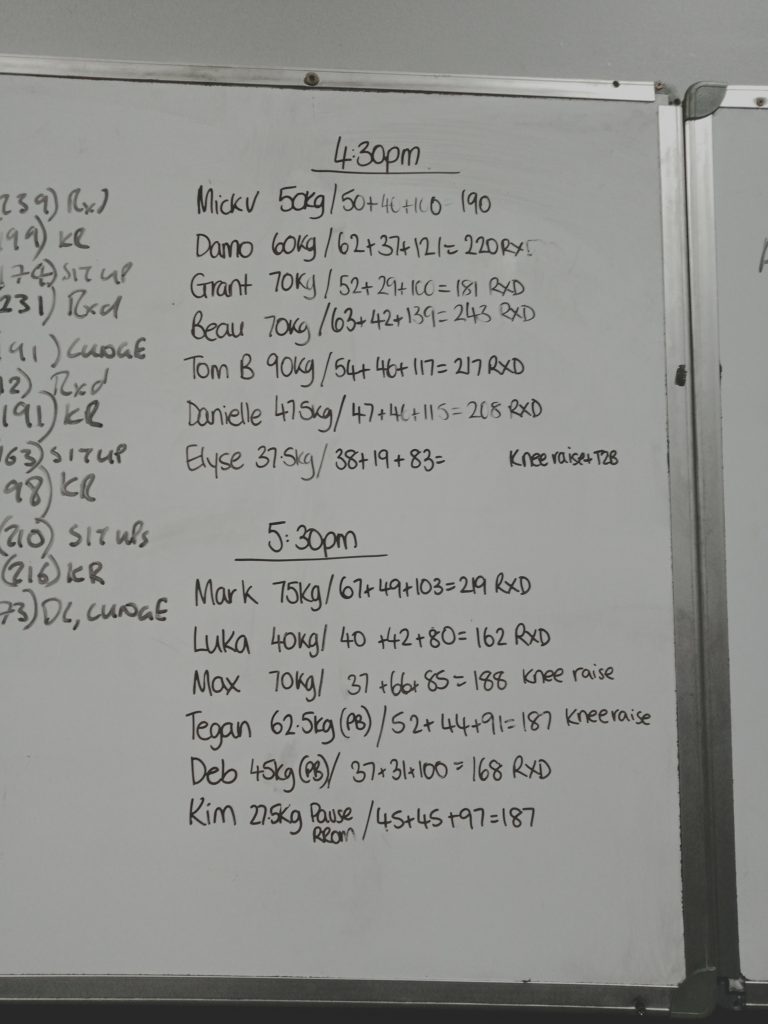 4:30pm
239) Rxd
Mickv 50kg/50+40+100 190
199) KR
Damo 60kg/62+37+121=220RXD
174) SIT UP
Grant 70kg/52+29+100=181 RXD
(231) Rxd
Beau 70kg/63+42+139=243 RXD
191)
Tom B 90kg/54+46+117=217RXD
12) Rxd
(191) KR
Danielle 47.5kg/47+46+115=208 RXD
163) SIT UP
Elyse 37.5kg/38+19+83= Knee raise+T2B
98) KR
(210) SIT UPS
5:30pm
(216) KR
Mark 75kg/67+49+103=219 RXD
73) DL,
Luka 40kg/40+42+80=162 RXD
Max 70kg/37+66+85=188 Knee raise
Tegan 62.5kg(PB)/52+44+91=187 Knee raise
Deb 45kg(PB)/37+31+100=168 RXD
Kim 27.5kg Pause /45+45+97=187
RROM